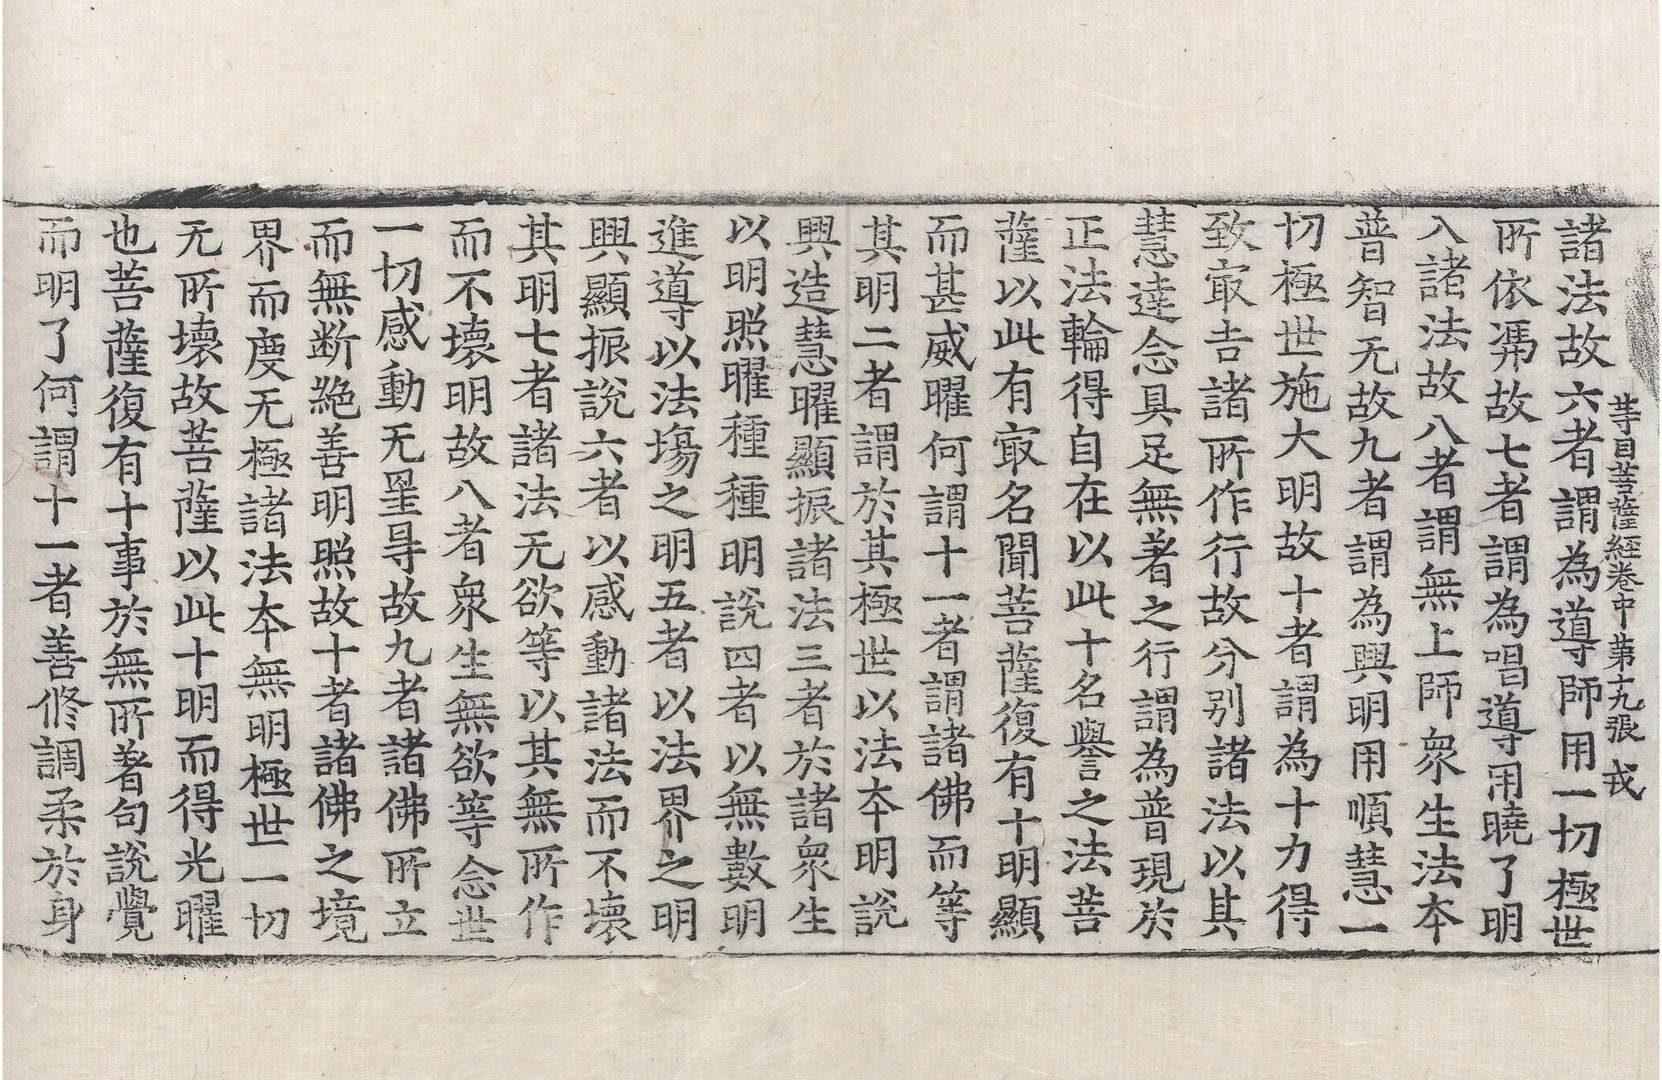 等目菩薩經卷中 第十九張 戎
諸法故六者謂為導師用一切極世
所依慿故七者謂為唱導用曉了明
入諸法故八者謂無上師衆生法夲
普智无故九者謂為興明用順慧一
切極世施大明故十者謂為十力得
致㝡吉諸所作行故分別諸法以其
慧達念具足無著之行謂為普現於
正法輪得自在以此十名譽之法菩
薩以此有㝡名聞菩薩復有十明顯
而甚威曜何謂十一者謂諸佛而等
其明二者謂於其極世以法夲明說
興造慧曜顯振諸法三者於諸衆生
以明照曜種種明說四者以無數明
進導以法塲之明五者以法界之明
興顯振說六者以感動諸法而不壞
其明七者諸法无欲等以其無所作
而不壞明故八者衆生無欲等念世
一切感動无罣㝵故九者諸佛所立
而無断絶善明照故十者諸佛之境
界而度无極諸法夲無明極世一切
无所壞故菩薩以此十明而得光曜
也菩薩復有十事於無所著句說覺
而明了何謂十一者善修調柔於身